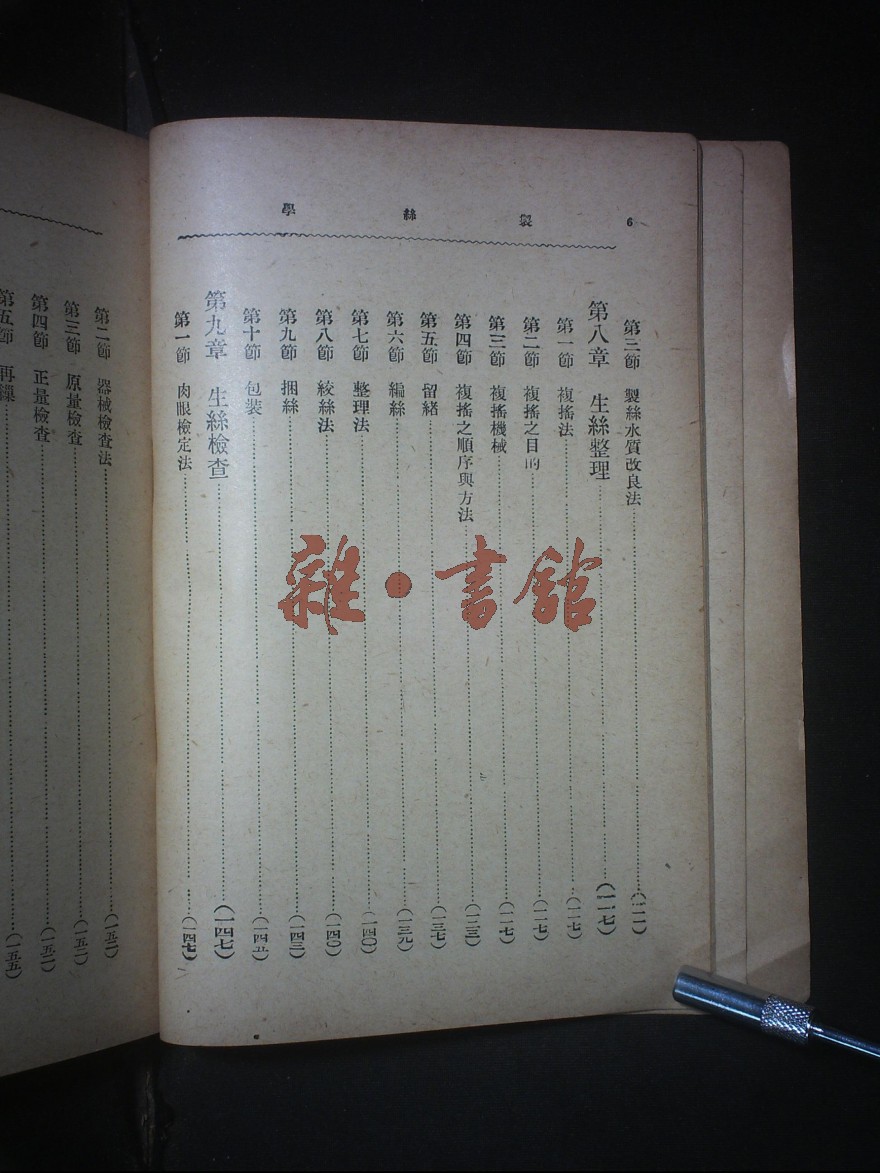 6 製絲學
第三節 製絲水質改良法
第八章 生絲整理……(一一七)
第一節 複搖法……(一一七)
第二節 複搖之目的……(一一七)
第三節 複搖機械……(一一七)
第四節 複搖之順序與方法……(一三三)
第五節 留緒……(一三七)
第六節 編絲……(一三九)
第七節 整理法……(一四〇)
第八節 絞絲法……(一四〇)
第九節 捆絲……(一四三)
第十節 包裝……(一四五)
第九章 生絲檢查……(一四七)
第一節 肉眼檢定法……(一四七)
第二節 器械檢查法……(一五一)
第三節 原量檢查……(一五二)
第四節 正量檢查……(一五二)
第五節 再繅……(一五五)
雜·書館